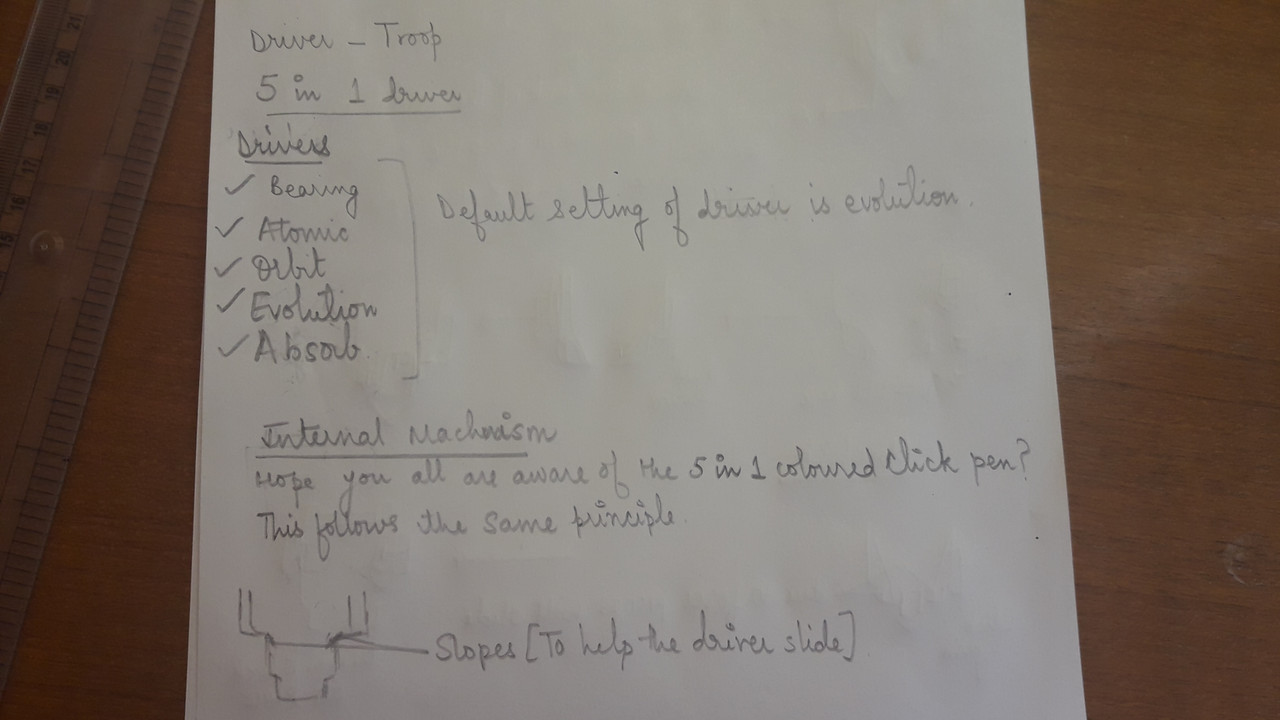 Driver - Troop
5 in 1 driver
Drivers
✓ Bearing
✓ Atomic
✓ Orbit
✓ Evolution
✓ Absorb
Default setting of driver is evolution.
Internal Machnism
Hope you all are aware of the 5 in 1 coloured click pen?
This follows the same principle.
Slopes [To help the driver slide]
15 16 17 18 19 20 21